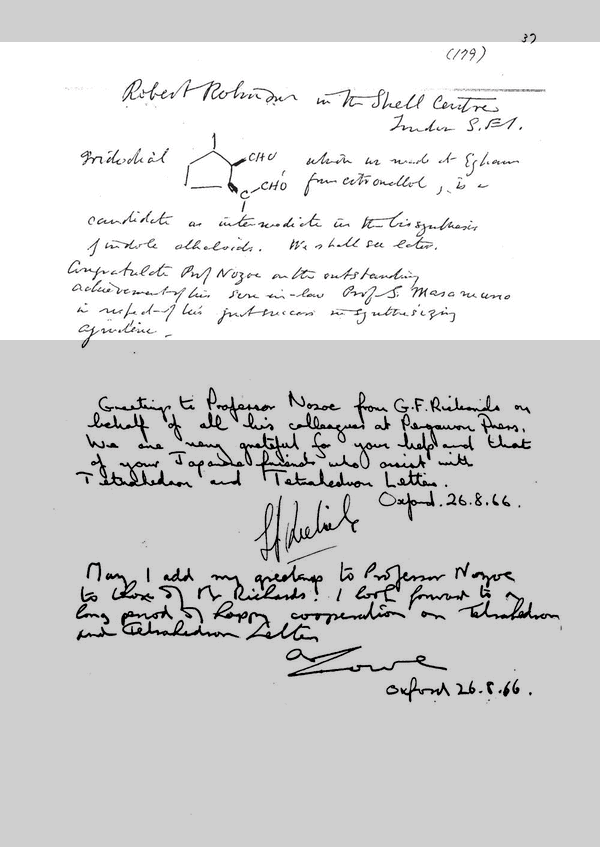 37
(179)
Robert Robinson in the Shell Centre
London S.E.1.
Iridodial CHO which is made at Egham
CHO from citronellol, is a
C
candidate as intermediate in the biosynthesis
of indole alkaloids. We shall see later.
Congratulate Prof Nozoe on the outstanding
achievement of his son-in-law Prof S. Masamune
in respect of his great success in synthesizing
Greetings to Professor Nozoe from G.F. Richards on
behalf of all his colleagues at Pergamon Press.
We are very grateful for your help and that
of your Japanese friends who assist with
Tetrahedron and Tetrahedron Letters.
Oxford. 26.8.66.
May I add my greetings to Professor Nozoe
to those of Mr Richards! I look forward to a
long period of happy cooperation on Tetrahedron
and Tetrahedron Letters
Lowe
Oxford 26.8.66.